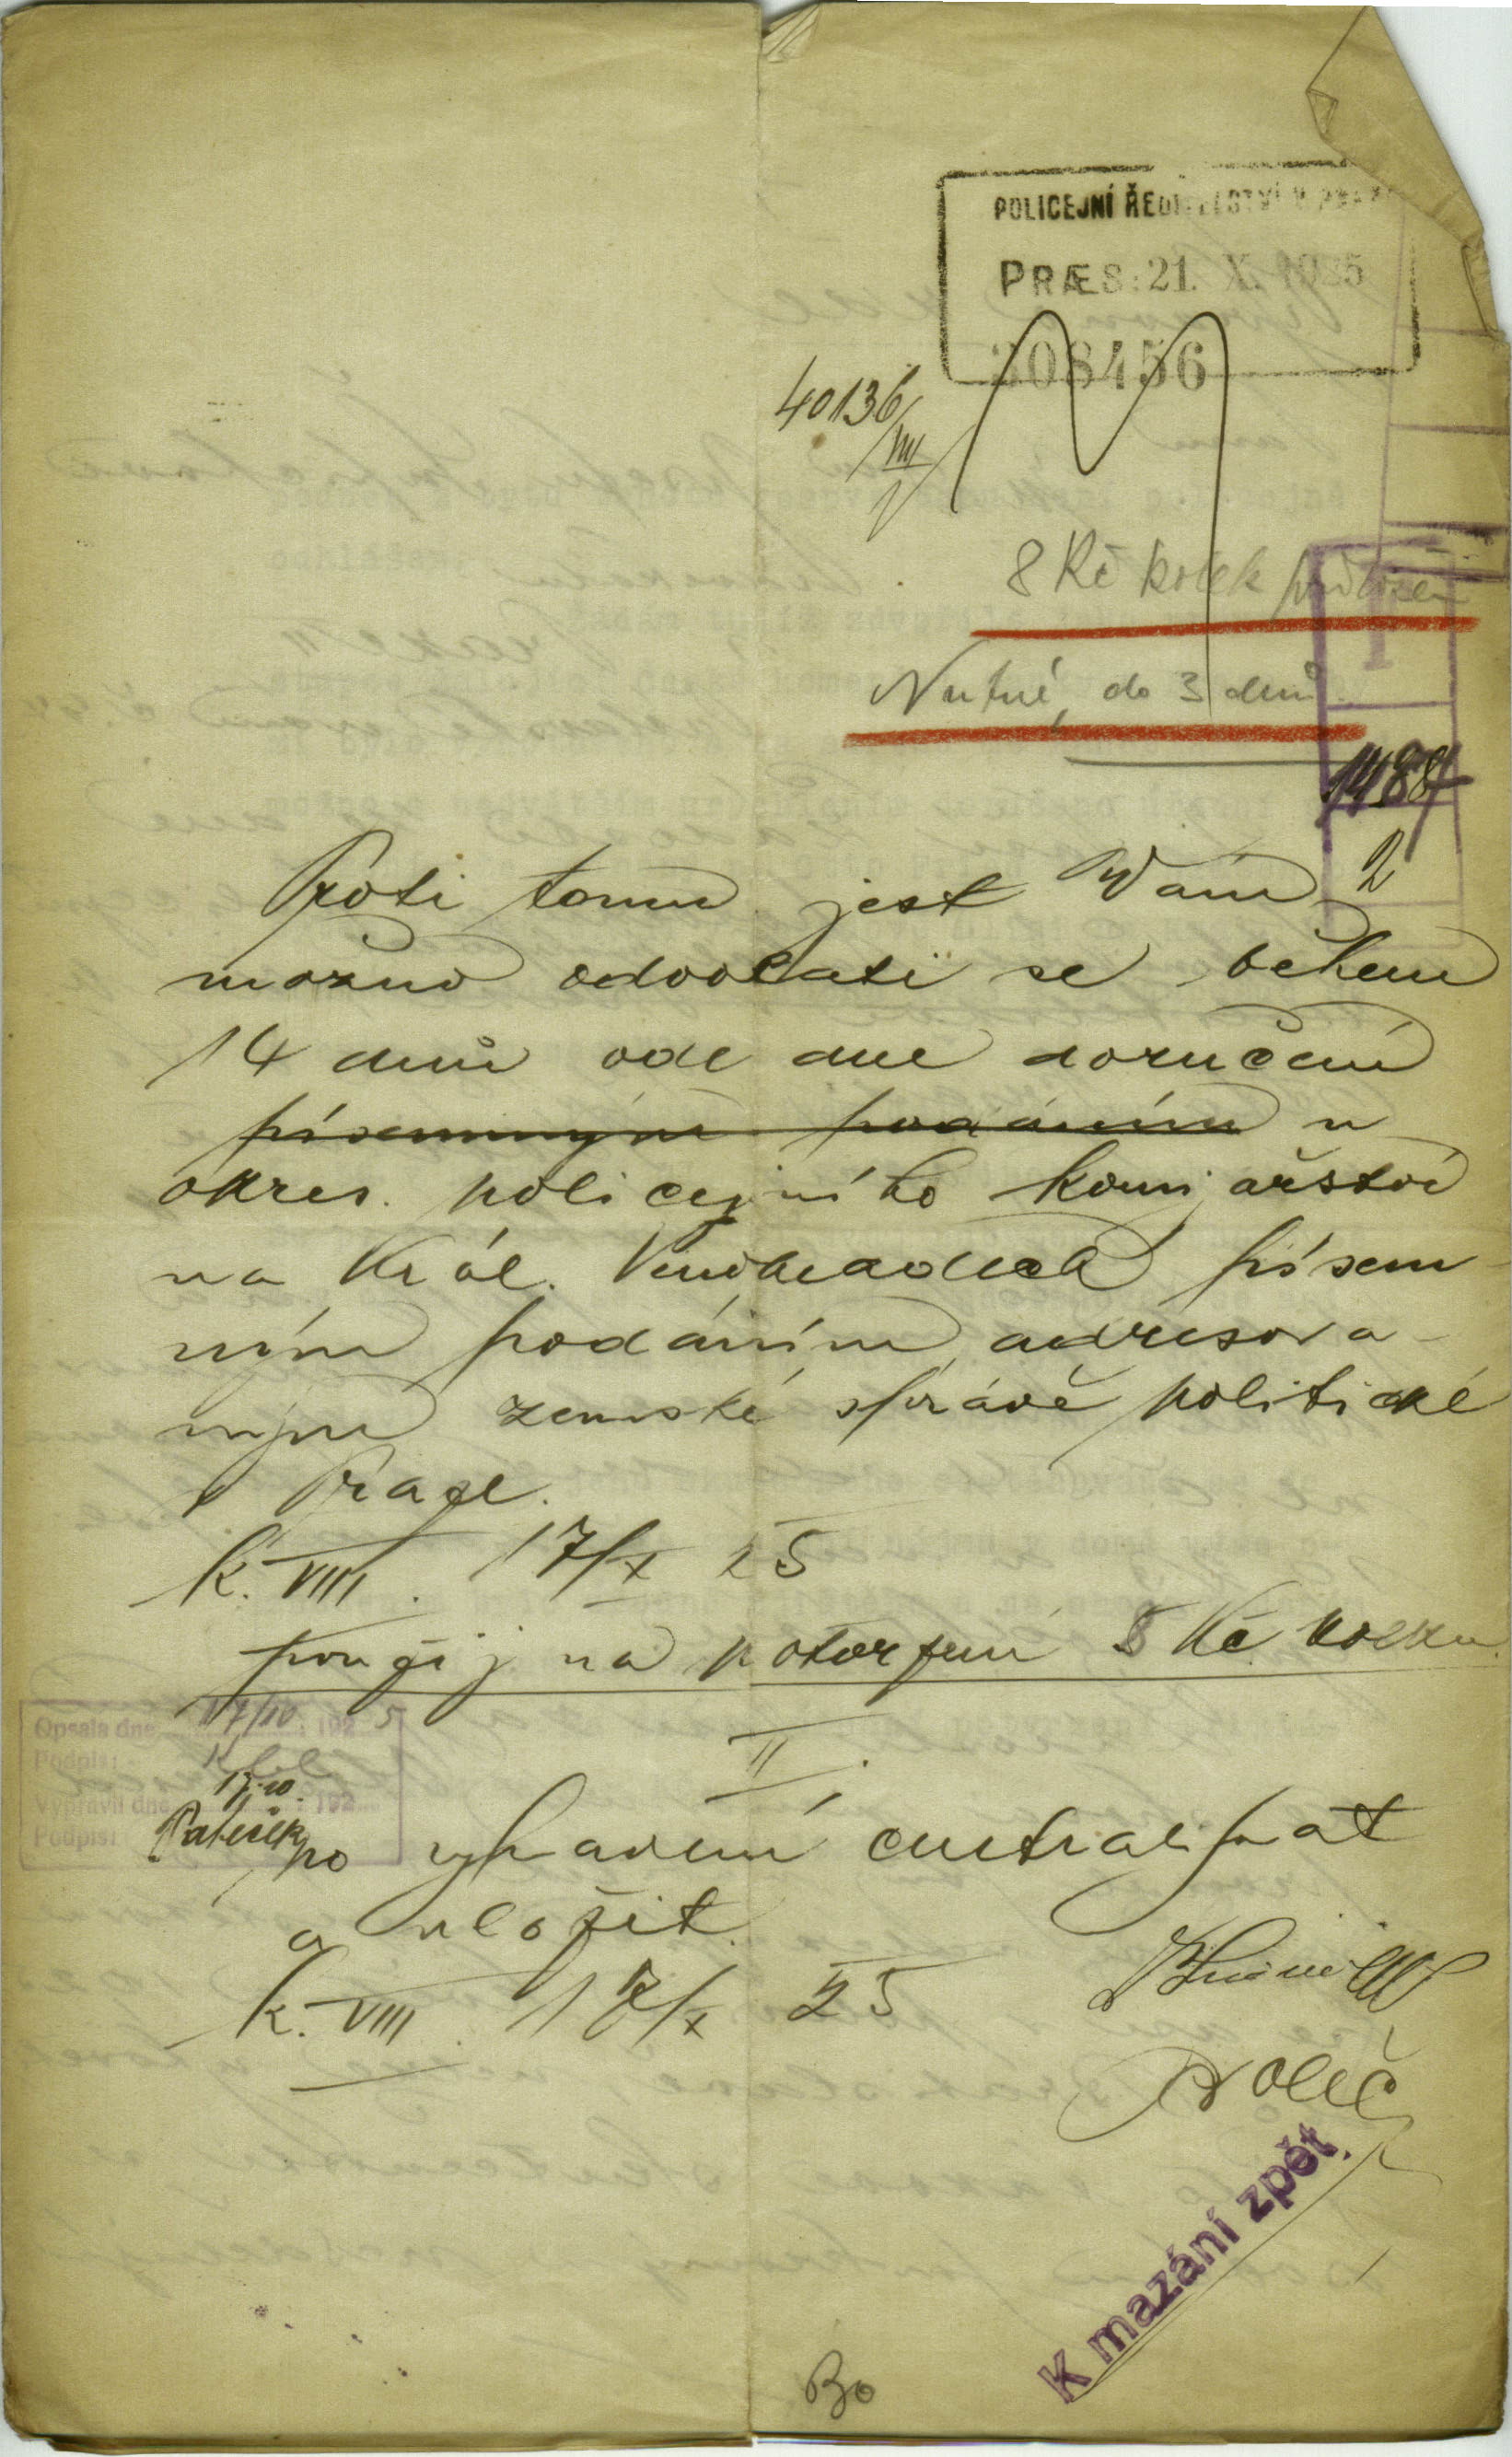 POLICEJNÍ ŘEDITELSTVÍ V PRAZE
PRÆS: 21. X. 1925
308456
40136/VIII
8 Kč kolek přiložen
Nutné, do 3 dnů
1488
2
Proti tomu jest Vám
možno odvolati se během
14 dnů ode dne doručení
písemným podáním u
okres. policejního komisařství
na Král. Vinohradech písem-
ným podáním adresova-
ným zemské správě politické
v Praze.
K. VIII. 17/X 25
použij na potvrzení 8 Kč kolku
Opsala dne 17/10 192 5
Podpis:
17.10.
Vypravil dne : 192
Podpis:
II.
po vypravení centralisovat
a uložit.
K. VIII. 17/X 25
K mazání zpět.
Bo